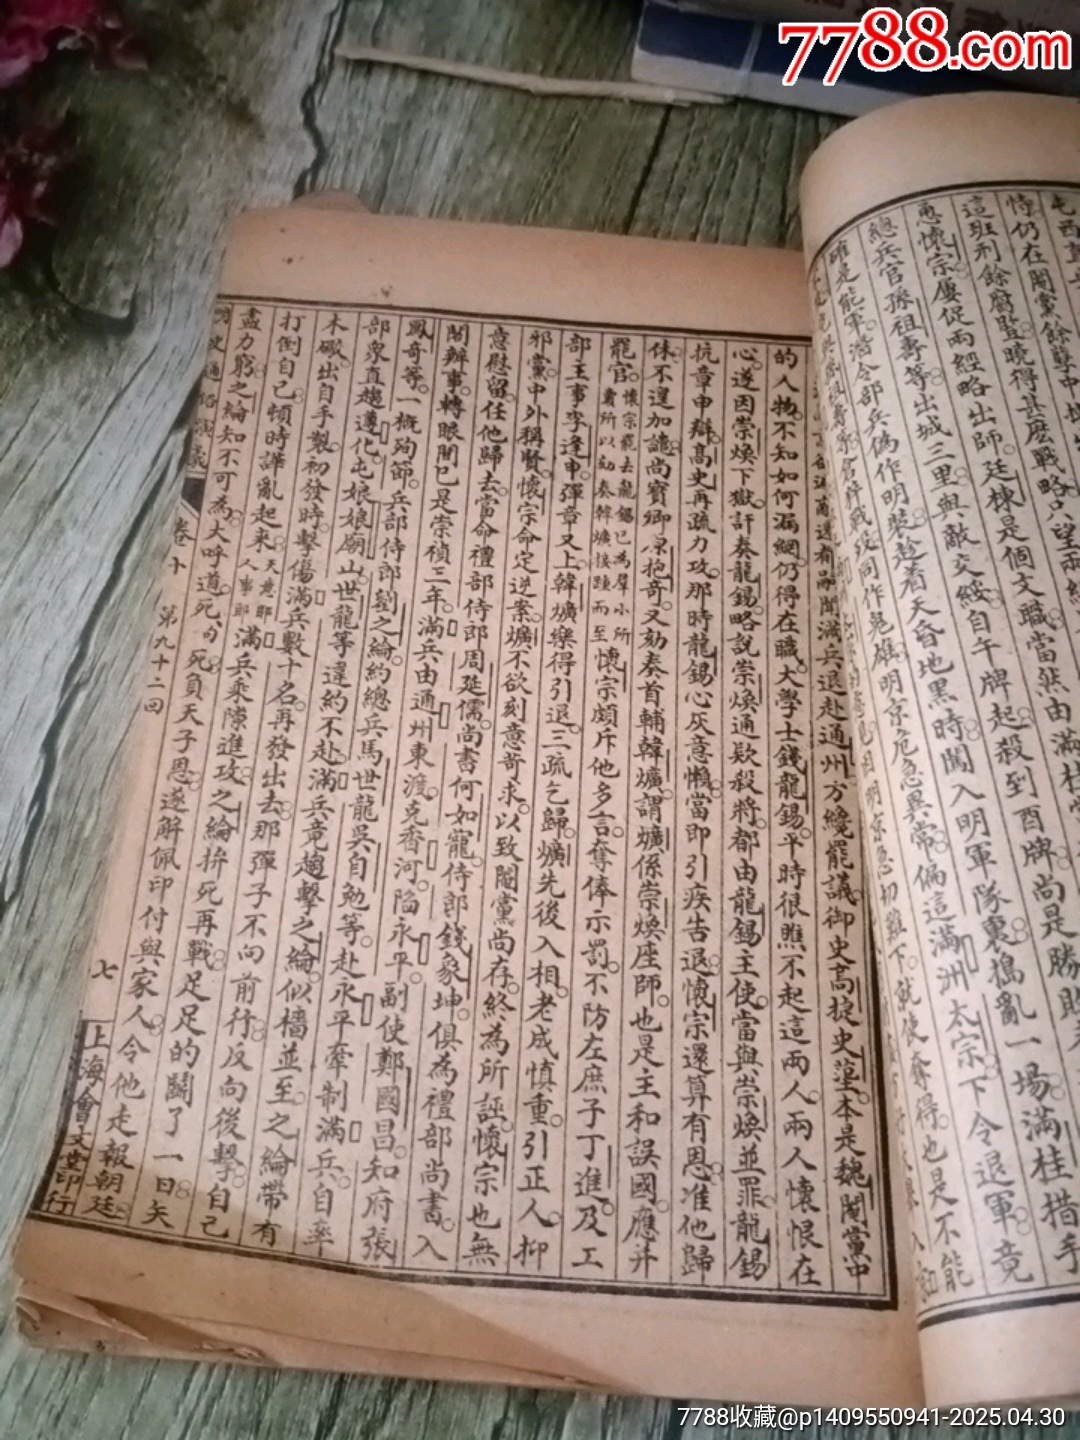 7788.com
這班刑餘腐豎曉得甚麽戰略只望兩經
懷宗屢促兩經略出師。廷棟是個文職。當然由滿桂
總兵官孫祖壽等出城三里與敵交綏。自午牌起殺到酉牌尚是勝敗
確是能軍。潛令部兵偽作明裝。趁着天昏地黑時闖入明軍隊裏搗亂一場。滿桂措手
同作鬼雄。明京危急異常。偏這滿洲太宗下令退軍。竟
明京急切難下。就使奪得。也是不能
滿兵退赴通州。方纔罷議。御史高捷史𡎊。本是魏閹黨中
的人物。不知如何漏網。仍得在職。大學士錢龍錫。平時很瞧不起這兩人。兩人懷恨在
心。遂因崇煥下獄。訐奏龍錫。略說崇煥通款殺將。都由龍錫主使。當與崇煥並罪。龍錫
抗章申辯。高史再疏力攻。那時龍錫心灰意懶。當即引疾告退。懷宗還算有恩。准他歸
休。不遑加譴。尚寶卿原抱奇。又劾奏首輔韓爌。謂爌係崇煥座師。也是主和誤國。應並
罷官。懷宗寵去龍錫已為羣小所
賣所以劾奏韓爌接踵而至懷宗頗斥他多言。奪俸示罰。不防左庶子丁進。及工
部主事李逢申。彈章又上。韓爌樂得引退。三疏乞歸。爌先後入相。老成慎重。引正人。抑
邪黨。中外稱賢。懷宗命定逆案。爌不欲刻意苛求。以致閹黨尚存。終為所誣。懷宗也無
意慰留。任他歸去。當命禮部侍郎周延儒。尚書何如寵。侍郎錢象坤。俱為禮部尚書。入
閣辦事。轉眼間已是崇禎三年。滿兵由通州東渡。克香河。陷永平。副使鄭國昌。知府張
鳳奇等。一概殉節。兵部侍郎劉之綸。約總兵馬世龍吳自勉等。赴永平牽制滿兵。自率
部衆直趨遵化。屯娘娘廟山。世龍等違約不赴。滿兵竟趨擊之綸。似檣並至。之綸帶有
木礮。出自手製。初發時。擊傷滿兵數十名。再發出去。那彈子不向前行。反向後擊。自己
打倒自己。頓時譁亂起來。天意耶
人事耶滿兵乘隙進攻。之綸拚死再戰。足足的鬭了一日。矢
盡力窮。之綸知不可為。大呼道。死。死。負天子恩。遂解佩印付與家人。令他走報朝廷。
明史通俗演義　卷十　第九十二回　七　上海會文堂印行
7788收藏@p1409550941-2025.04.30